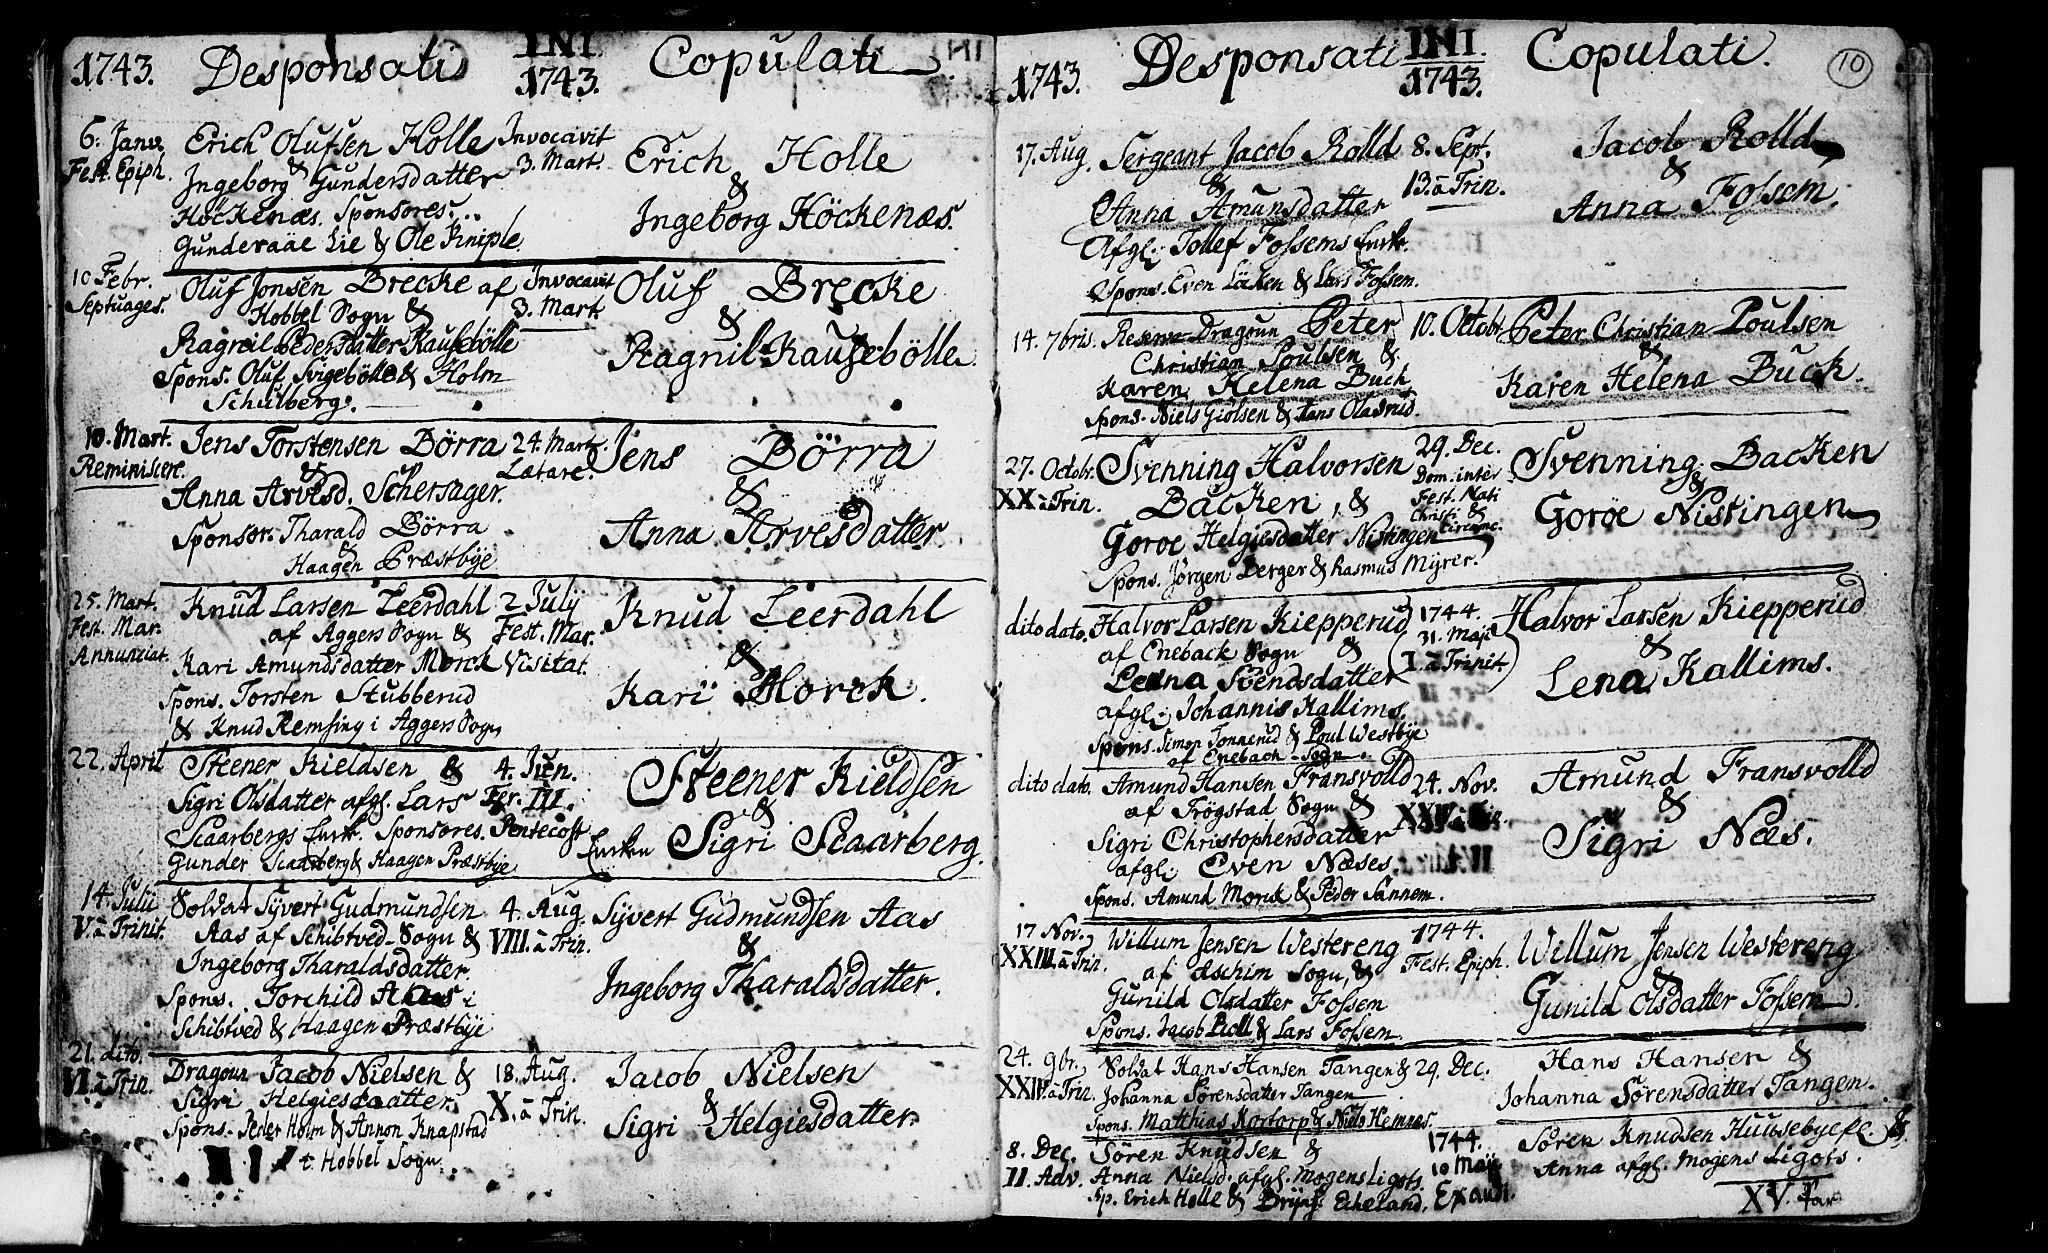 1743. Desponsati INI 1743. Copulati
6. Janv. Fest. Epiph.
Erich Olufsen Holle
&
Ingeborg Gundersdatter
Höckenæs. Sponsores.
Gunderaae Lie & Ole Kniple
Invocavit
3. Mart.
Erich Holle
&
Ingeborg Höckenæs.
10 Febr.
Septuages.
Oluf Jonsen Brecke af
Hobbel Sogn &
Ragnil Pedersdatter Kausebölle
Spons. Oluf Svigebölle & Holm
Schulberg.
Invocavit
3. Mart
Oluf Brecke
&
Ragnil Kausebölle.
10. Mart.
Reminiscere.
Jens Torstensen Börra
&
Anna Arvesd. Schersager.
Sponsor. Tharald Börra
&
Haagen Præstbye
24. Mart.
Lætare.
Jens Börra
&
Anna Arvesdatter.
25. Mart.
Fest. Mar.
Annunciat.
Knud Larsen Leerdahl
af Aggers Sogn &
Kari Amundsdatter Morck
Spons. Torsten Stubberud
& Knud Remsing i Aggers Sogn
2 July
Fest. Mar.
Visitat.
Knud Leerdahl
&
Kari Morck.
22. April
Steener Kieldsen &
Sigri Olsdatter afgl. Lars
Scaarbergs Enrk. Sponsores.
Gunder Scaarberg & Haagen Præstbye
4. Jun.
Fer. III.
Pentecost
Steener Kieldsen
&
Enrken Sigri Scaarberg.
14. Julii
V. à Trinit.
Soldat Syvert Gudmundsen
Aas af Schibtved Sogn &
Ingeborg Tharaldsdatter.
Spons. Torchild Aas i
Schibtved & Haagen Præstbye
4. Aug.
VIII. à Trin.
Syvert Gudmundsen Aas
&
Ingeborg Tharaldsdatter.
21. dito.
VI. à Trin.
Dragoun Jacob Nielsen &
Sigri Helgiesdaatter.
Spons. Peder Holm & Annon Knapstad
t. Hobbel Sogn.
18. Aug.
X. à Trin.
Jacob Nielsen
&
Sigri Helgiesdatter.
1743. Desponsati INI. 1743. Copulati. 10
17. Aug.
Sergeant Jacob Rolld
&
Anna Amunsdatter
Afgl. Tollef Fossems Enrk.
Spons. Even Löcken & Lars Fossem.
8. Sept.
13. à Trin.
Jacob Rolld
&
Anna Fossem.
14. 7bris.
Reserve Dragoun Peter
Christian Poulsen &
Karen Helena Buck
Spons. Niels Giolsen & Hans Olasrud.
10. Octobr.
Peter Christian Poulsen
&
Karen Helena Buck.
27. Octobr.
XX à Trin.
Svenning Halvorsen
Backen, &
Goroe Helgiesdatter Nistingen
Spons. Jørgen Berger & Rasmus Myrer.
29. Dec.
Dom. inter
Fest. Nati
Christi &
Circumc.
Svenning Backen
&
Goroe Nistingen
dito dato.
Halvor Larsen Kiepperud
af Eneback Sogn &
Lena Svendsdatter
afgl. Johannis Kallims.
Spons. Simon Tonnerud & Poul Westbye
af Eneback Sogn.
1744.
31. Maji
(I. à Trinit.)
Halvor Larsen Kiepperud
&
Lena Kallims.
dito dato.
Amund Hansen Fransvolld
af Trögstad Sogn &
Sigri Christophersdatter
afgl. Even Næses.
Spons. Amund Morck & Peder Sannem.
24. Nov.
XXIV. à Trin.
Amund Fransvolld
&
Sigri Næs.
17 Nov.
XXIII. à Trin.
Willum Jensen Westereng
af Aschim Sogn, &
Gunild Olsdatter Fossem
Spons. Jacob Roll & Lars Fossem.
1744.
Fest. Epiph.
Willum Jensen Westereng
&
Gunild Olsdatter Fossem
24. 9br.
XXIV. à Trin.
Soldat Hans Hansen Tangen &
Johanna Sörensdatter Tangen
Spons. Matthias Kortorp & Niels Hemnes.
29. Dec.
Hans Hansen &
Johanna Sørensdatter Tangen.
8. Dec.
II. Adv.
Sören Knudsen &
Anna Nielsd. afgl. Mogens Ligots.
Sp. Erich Holle & Brynj. Echeland.
1744.
10 Maji
Exaudi.
Søren Knudsen Huusebye &
Anna afgl. Mogens Ligots.
XV. Par